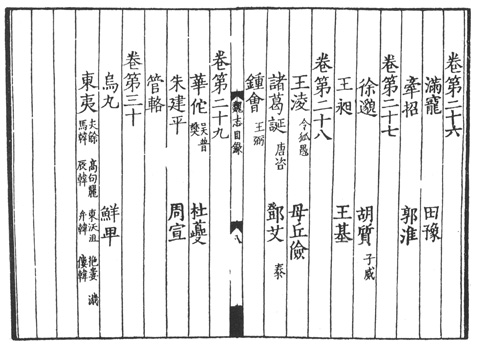 卷第二十六
滿寵 田豫
牽招 郭淮
卷第二十七
徐邈 胡質 子威
王昶 王基
卷第二十八
王淩 令狐愚 毌丘儉
諸葛誕 唐咨 鄧艾 泰
鍾會 王弼
魏志目錄 八
卷第二十九
華佗 吳普 樊 杜夔
朱建平 周宣
管輅
卷第三十
烏丸 鮮卑
東夷 夫餘 高句麗 東沃沮 挹婁 濊
馬韓 辰韓 弁韓